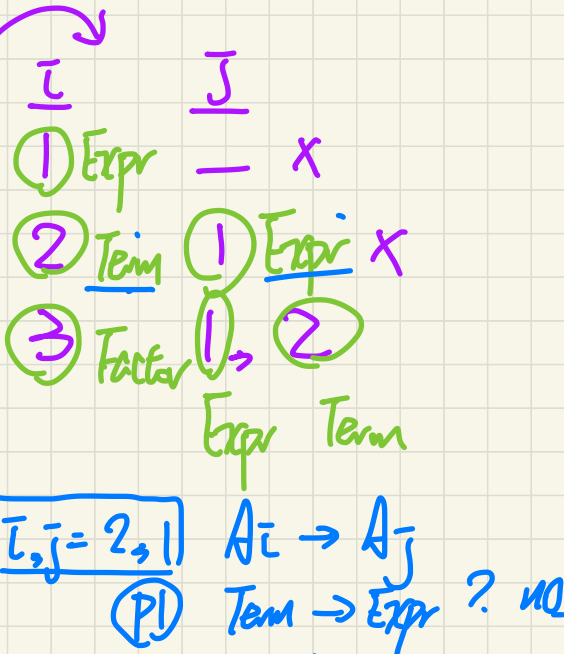 i j
1 Expr — x
2 Term 1 Expr x
3 Factor 1 → 2
Expr Term
i, j = 2, 1 Ai → Aj
P1 Term → Expr ? no